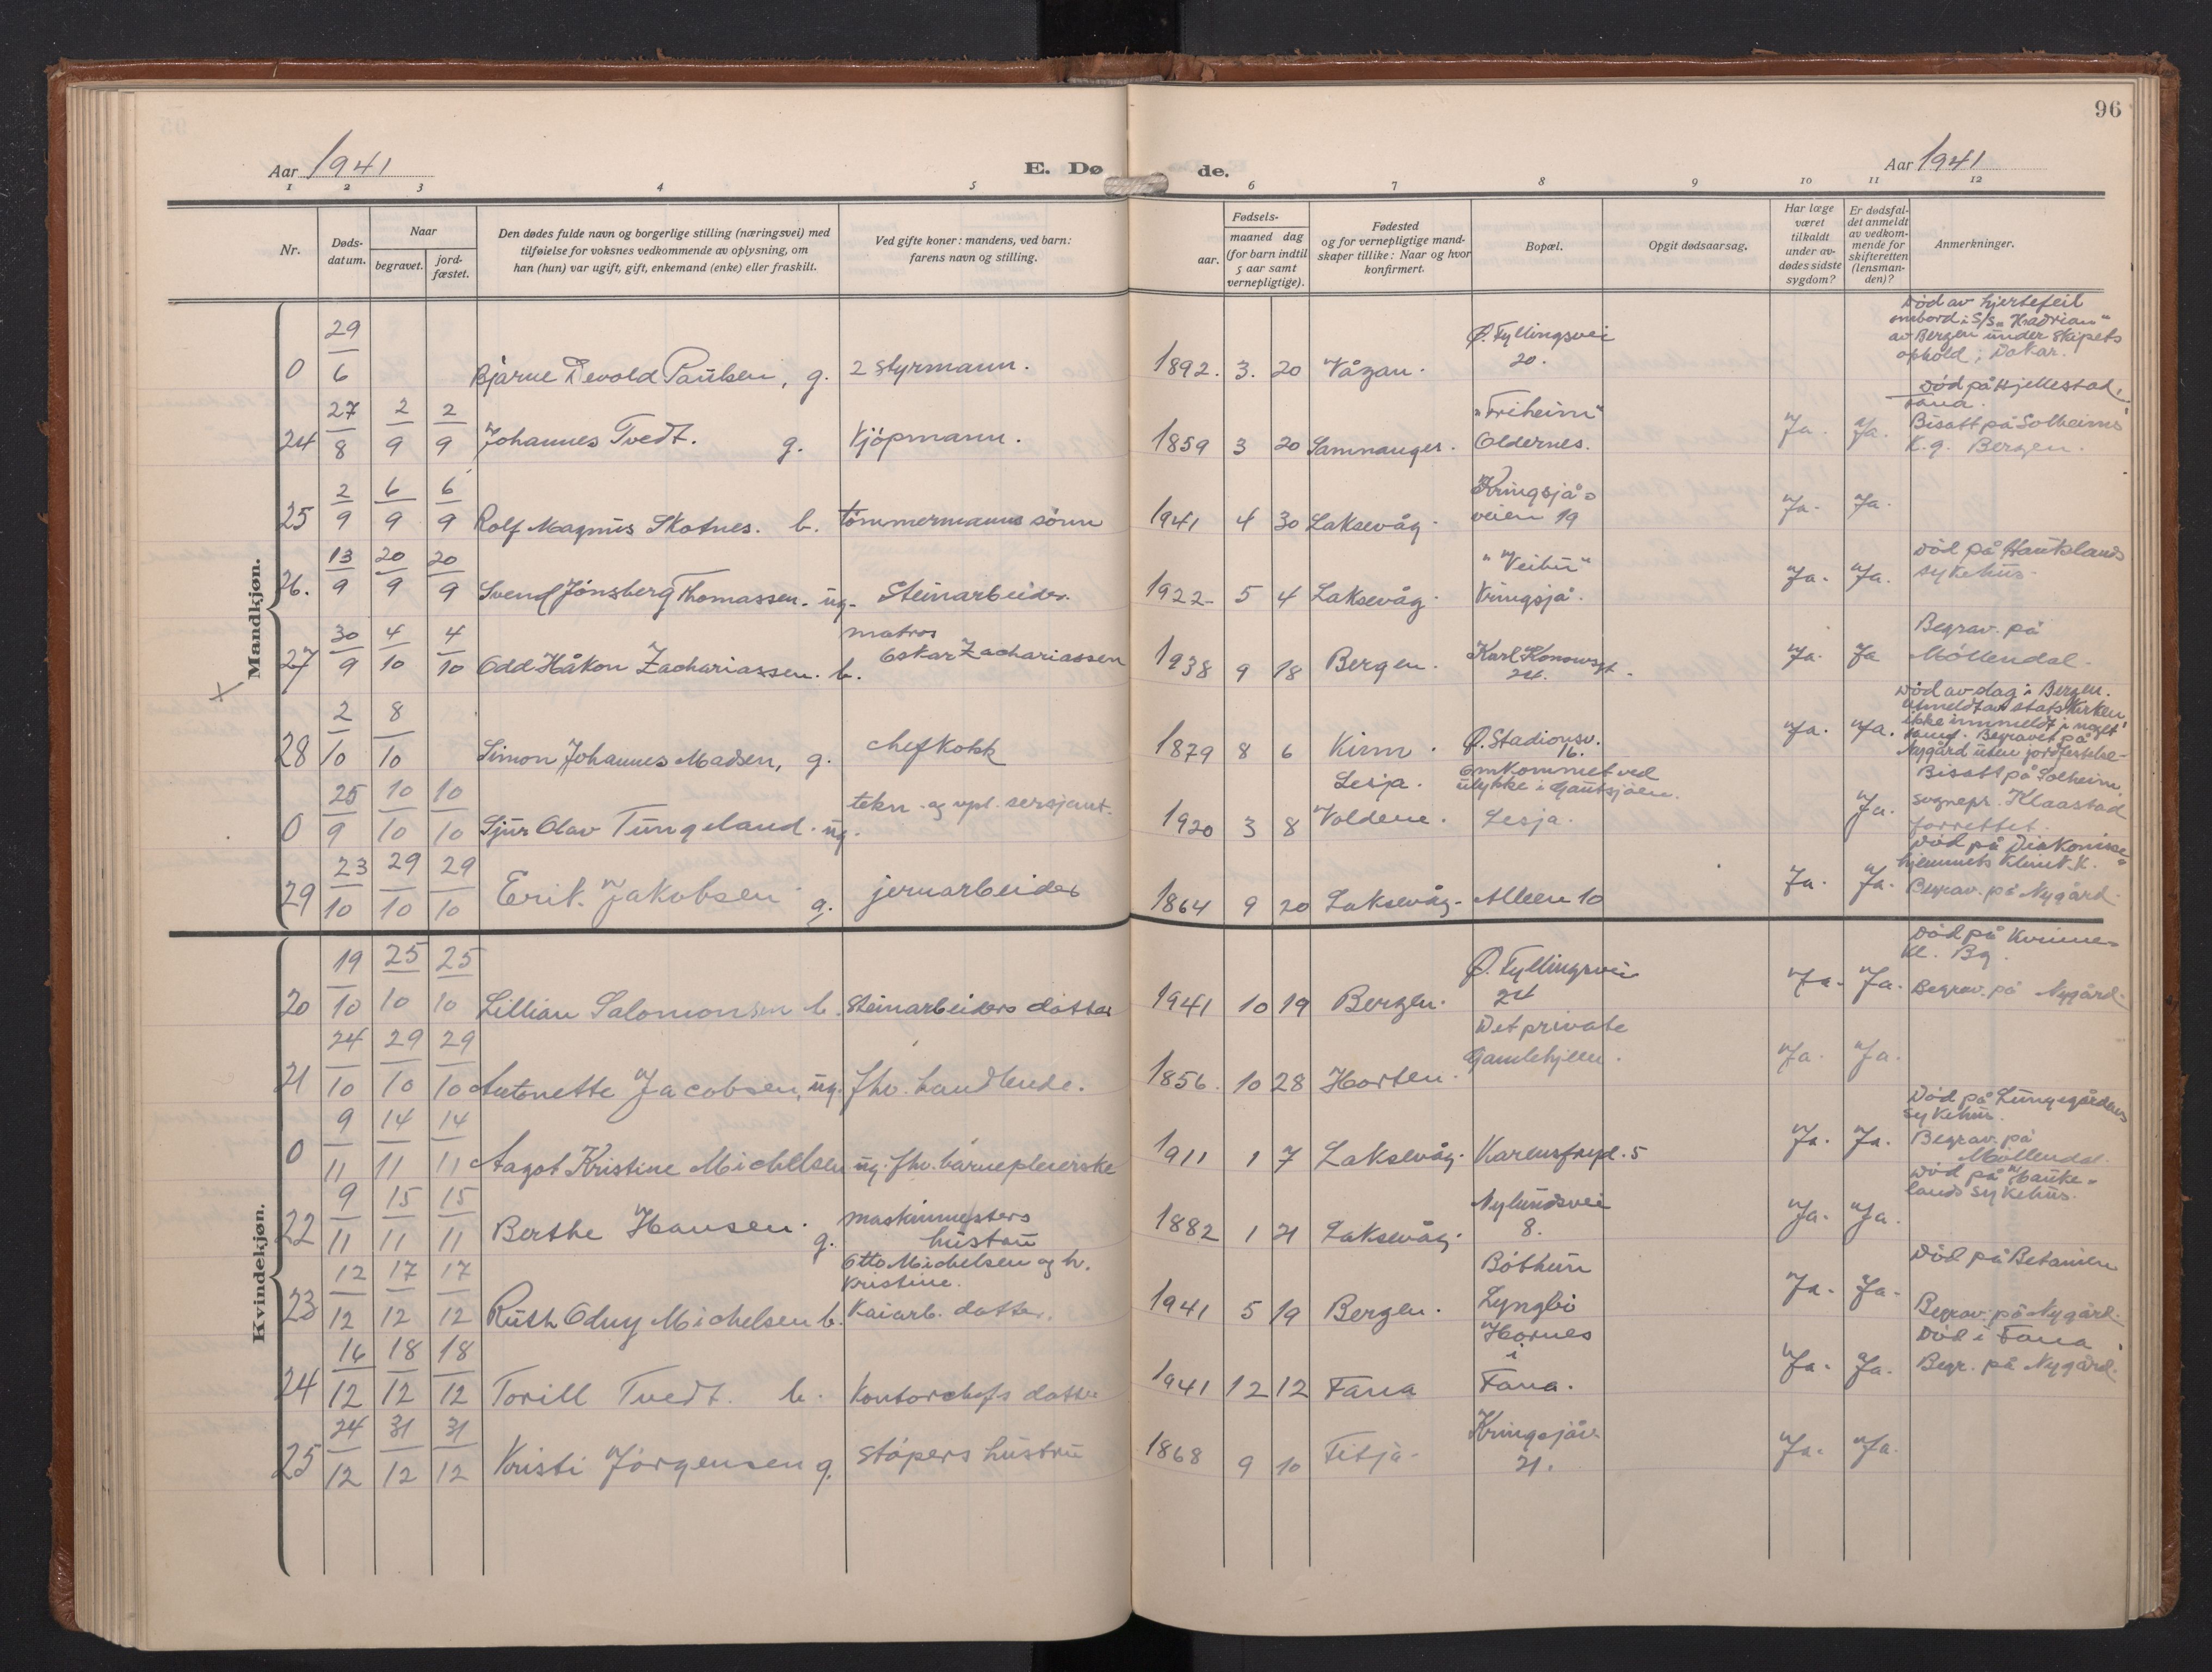 96
Aar 1941
E. Dø
de.
Aar 1941
1 2 3 4 5 6 7 8 9 10 11 12
Nr.
Døds-
datum.
Naar
begravet.
jord-
fæstet.
Den dødes fulde navn og borgerlige stilling (næringsvei) med
tilføielse for voksnes vedkommende av oplysning, om
han (hun) var ugift, gift, enkemand (enke) eller fraskilt.
Ved gifte koner: mandens, ved barn:
farens navn og stilling.
Fødsels-
aar.
maaned dag
(for barn indtil
5 aar samt
vernepligtige).
Fødested
og for vernepligtige mand-
skaper tillike: Naar og hvor
konfirmert.
Bopæl.
Opgit dødsaarsag.
Har læge
været
tilkaldt
under av-
dødes sidste
sygdom?
Er dødsfal-
det anmeldt
av vedkom-
mende for
skifteretten
(lensman-
den)?
Anmerkninger.
Mandkjøn.
0 29/6 Bjarne Devold Paulsen, g. 2 styrmann. 1892. 3. 20 Vågan. Ø. Fyllingsvei
20.
Død av hjertefeil
ombord i S/S "Hadrian"
av Bergen under skipets
ophold i Dakar.
24 27/8 2/9 2/9 Johannes Tvedt. g. Kjøpmann. 1859 3 20 Samnanger. "Friheim"
Oldernes. Ja. Ja.
Død på Hjellestad,
Fana.
Bisatt på Solheims
k.g. Bergen.
25 2/9 6/9 6/9 Rolf Magnus Skotnes. b. tømmermanns sønn 1941 4 30 Laksevåg. Kringsjå-
veien 19 Ja. Ja.
26. 13/9 20/9 20/9 Svend Jønsberg Thomassen. ug. Steinarbeider. 1922 5 4 Laksevåg. "Veibu"
Kringsjå. Ja. Ja.
Død på Hauklands
sykehus.
27 30/9 4/10 4/10 Odd Håkon Zachariassen. b. matros
Oskar Zachariassen 1938 9 18 Bergen. Karl Konowsgt.
24. Ja. Ja
Begrav. på
Möllendal.
X
28 2/10 8/10 Simon Johannes Madsen, g. chefkokk 1879 8 6 Kinn. Ø. Stadionsv.
16. Ja. Ja.
Død av slag i Bergen.
Utmeldt av statskirken,
ikke innmeldt i noget
samf. Begravet på
Nygård uten jordfestelse
0 25/9 10/10 10/10 Sjur Olav Tungeland. ug. tekn. og vpl. sersjant. 1920 3 8 Lesja.
Voldene. Omkommet ved
ulykke i Gautsjøen.
Lesja. Ja.
Bisatt på Solheim.
sognepr. Klaastad
forrettet.
29 23/10 29/10 29/10 Erik Jakobsen g. jernarbeider 1864 9 20 Laksevåg. Alleen 10 Ja. Ja.
Død på Diakonisse-
hjemmets Klinik.
Begrav. på Nygård.
Kvindekjøn.
20 19/10 25/10 25/10 Lillian Salomonsen b. Steinarbeiders datter 1941 10 19 Bergen. Ø. Fyllingsvei
24 Ja. Ja.
Død på Kvinne-
kl. Bg.
Begrav. på Nygård.
21 24/10 29/10 29/10 Antonette Jacobsen, ug. fhv. handlende. 1856. 10 28 Horten. Det private
Gamlehjem. Ja. Ja.
0 9/11 14/11 14/11 Aagot Kristine Michelsen ug. fhv. barnepleierske 1911 1 7 Laksevåg. Karensfryd. 5 Ja. Ja.
Død på Lungegårdens
sykehus.
Begrav. på
Möllendal.
22 9/11 15/11 15/11 Berthe Hansen. g. Maskinmesters
hustru 1882 1 21 Laksevåg. Nylundsvei
8. Ja. Ja.
Død på Hauke-
lands sykehus.
23 12/12 17/12 17/12 Ruth Odny Michelsen b. Otto Michelsen og h.
Kristine.
Kaiarb. datter. 1941 5 19 Bergen. Bóthun
Lyngbø Ja. Ja.
Død på Betanien
Begrav. på Nygård.
24 16/12 18/12 18/12 Torill Tvedt. b. Kontorchefs datter 1941 12 12 Fana Hornes
i
Fana. Ja. Ja.
Død i Fana
Begr. på Nygård.
25 24/12 31/12 31/12 Kristi Jörgensen g. støpers hustru 1868 9 10 Fitja. Kringsjåv.
21. Ja. Ja.